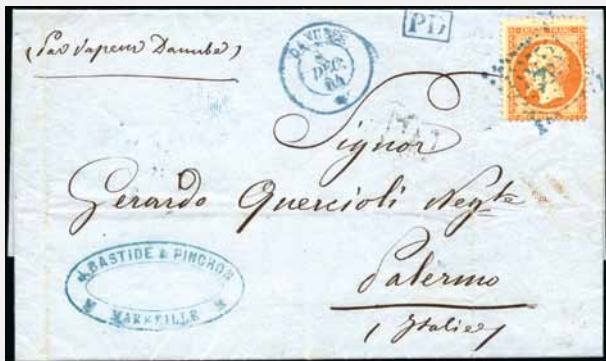 (Par vapeur Danube)
DANUBE
DÉC.
64
PD
EMPIRE FRANC.
Signor
Gerardo Quercioli Negte
Palermo
(Italie)
BASTIDE & PINCHON
MARSEILLE